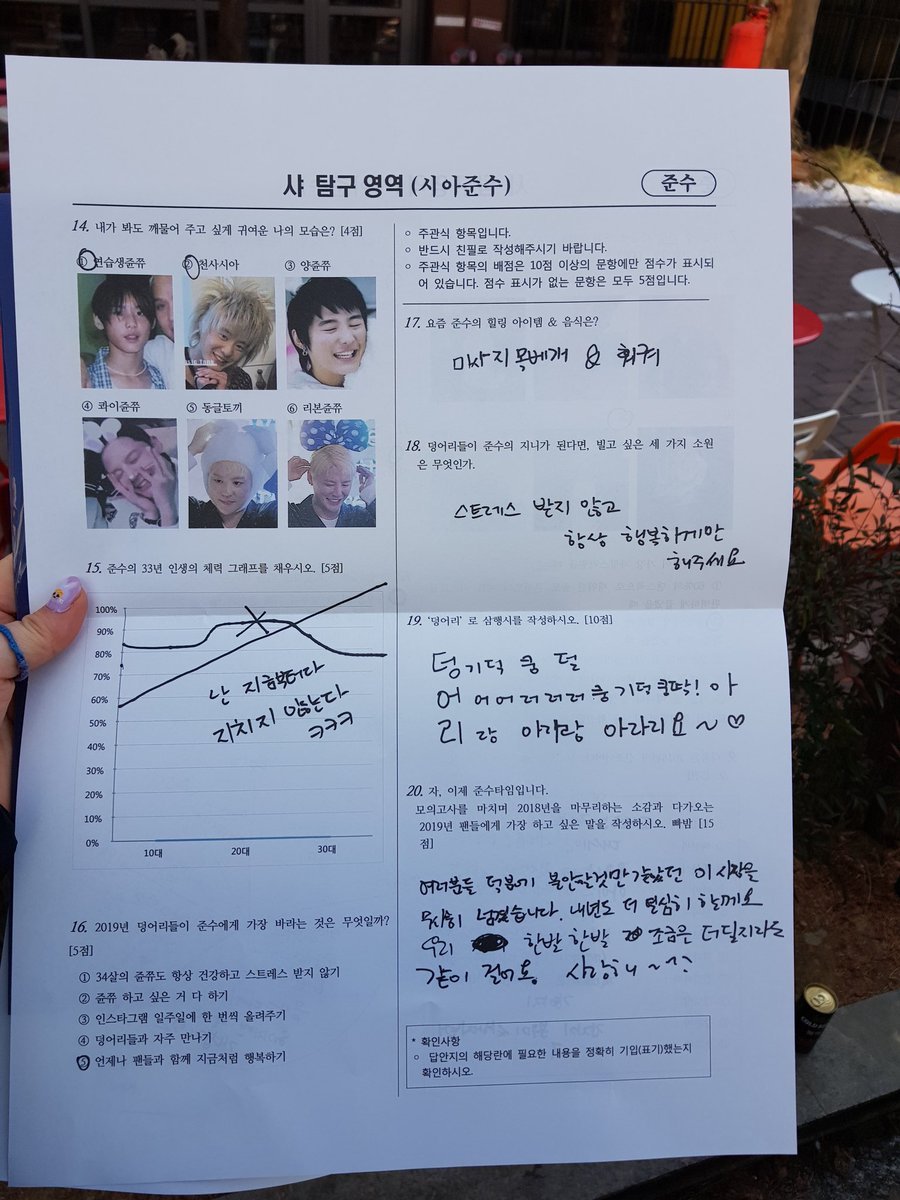 샤 탐구 영역 (시아준수)
준수
14. 내가 봐도 깨물어 주고 싶게 귀여운 나의 모습은? [4점]
① 연습생쥰쮸 ② 천사시아 ③ 양쥰쮸
④ 콰이쥰쮸 ⑤ 동글토끼 ⑥ 리본쥰쮸
15. 준수의 33년 인생의 체력 그래프를 채우시오. [5점]
100%
90%
80%
70%
60%
50%
40%
30%
20%
10%
0%
10대 20대 30대
난 지금부터다
지치지 않는다
ㅋㅋㅋ
16. 2019년 덩어리들이 준수에게 가장 바라는 것은 무엇일까?
[5점]
① 34살의 쥰쮸도 항상 건강하고 스트레스 받지 않기
② 쥰쮸 하고 싶은 거 다 하기
③ 인스타그램 일주일에 한 번씩 올려주기
④ 덩어리들과 자주 만나기
⑤ 언제나 팬들과 함께 지금처럼 행복하기
○ 주관식 항목입니다.
○ 반드시 친필로 작성해주시기 바랍니다.
○ 주관식 항목의 배점은 10점 이상의 문항에만 점수가 표시되
어 있습니다. 점수 표시가 없는 문항은 모두 5점입니다.
17. 요즘 준수의 힐링 아이템 & 음식은?
마사지 목베개 & 훠궈
18. 덩어리들이 준수의 지니가 된다면, 빌고 싶은 세 가지 소원
은 무엇인가.
스트레스 받지 않고
항상 행복하게만
해주세요
19. '덩어리' 로 삼행시를 작성하시오. [10점]
덩기덕 쿵 덜
어 어어러러러쿵기덕쿵딱! 아
리 랑 아리랑 아라리요~♡
20. 자, 이제 준수타임입니다.
모의고사를 마치며 2018년을 마무리하는 소감과 다가오는
2019년 팬들에게 가장 하고 싶은 말을 작성하시오. 빠밤 [15
점]
여러분들 덕분에 불안할것만 같았던 이 시작을
무사히 넘겼습니다. 내년도 더 열심히 할께요
우리 한발 한발 조금은 더딜지라도
같이 걸어용 사랑해~^^
* 확인사항
○ 답안지의 해당란에 필요한 내용을 정확히 기입(표기)했는지
확인하시오.